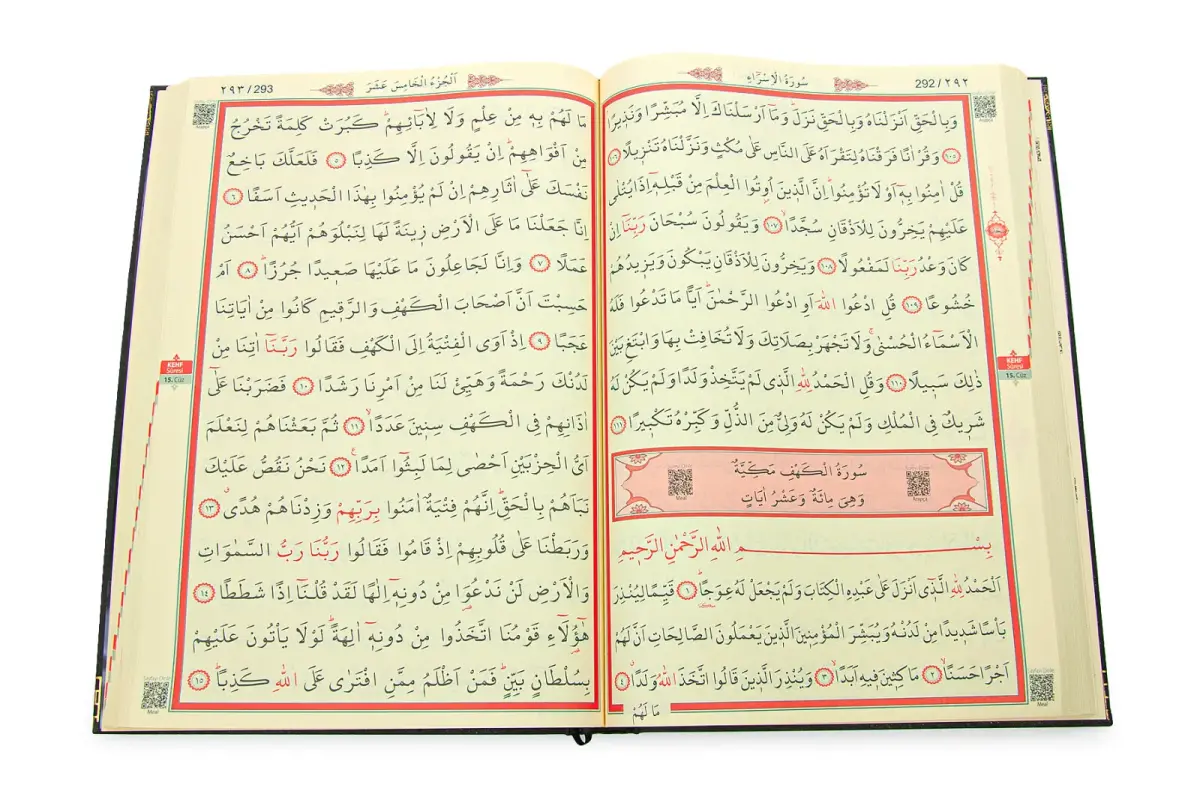 292/٢٩٢
سُورَةُ الْاِسْرَٓاءِ
وَبِالْحَقِّ اَنْزَلْنَاهُ وَبِالْحَقِّ نَزَلَۜ وَمَٓا اَرْسَلْنَاكَ اِلَّا مُبَشِّرًا وَنَذ۪يرًا
١٠٥ وَقُرْاٰنًا فَرَقْنَاهُ لِتَقْرَاَهُ عَلَى النَّاسِ عَلٰى مُكْثٍ وَنَزَّلْنَاهُ تَنْز۪يلًا ١٠٦
قُلْ اٰمِنُوا بِه۪ٓ اَوْ لَا تُؤْمِنُواۜ اِنَّ الَّذ۪ينَ اُو۫تُوا الْعِلْمَ مِنْ قَبْلِه۪ٓ اِذَا يُتْلٰى
عَلَيْهِمْ يَخِرُّونَ لِلْاَذْقَانِ سُجَّدًاۙ ١٠٧ وَيَقُولُونَ سُبْحَانَ رَبِّنَٓا اِنْ
كَانَ وَعْدُ رَبِّنَا لَمَفْعُولًا ١٠٨ وَيَخِرُّونَ لِلْاَذْقَانِ يَبْكُونَ وَيَز۪يدُهُمْ
خُشُوعًا ١٠٩ قُلِ ادْعُوا اللّٰهَ اَوِ ادْعُوا الرَّحْمٰنَۜ اَيًّا مَا تَدْعُوا فَلَهُ
الْاَسْمَٓاءُ الْحُسْنٰىۚ وَلَا تَجْهَرْ بِصَلَاتِكَ وَلَا تُخَافِتْ بِهَا وَابْتَغِ بَيْنَ
ذٰلِكَ سَب۪يلًا ١١٠ وَقُلِ الْحَمْدُ لِلّٰهِ الَّذ۪ي لَمْ يَتَّخِذْ وَلَدًا وَلَمْ يَكُنْ لَهُ
شَر۪يكٌ فِي الْمُلْكِ وَلَمْ يَكُنْ لَهُ وَلِيٌّ مِنَ الذُّلِّ وَكَبِّرْهُ تَكْب۪يرًا ١١١
سُورَةُ الْكَهْفِ مَكِّيَّةٌ
وَهِيَ مِائَةٌ وَعَشْرُ اٰيَاتٍ
Meal
Arapça
بِسْمِ اللّٰهِ الرَّحْمٰنِ الرَّح۪يمِ
اَلْحَمْدُ لِلّٰهِ الَّذ۪ٓي اَنْزَلَ عَلٰى عَبْدِهِ الْكِتَابَ وَلَمْ يَجْعَلْ لَهُ عِوَجًاۜ ١ قَيِّمًا لِيُنْذِرَ
بَأْسًا شَد۪يدًا مِنْ لَدُنْهُ وَيُبَشِّرَ الْمُؤْمِن۪ينَ الَّذ۪ينَ يَعْمَلُونَ الصَّالِحَاتِ اَنَّ لَهُمْ
اَجْرًا حَسَنًاۙ ٢ مَاكِث۪ينَ ف۪يهِ اَبَدًاۙ ٣ وَيُنْذِرَ الَّذ۪ينَ قَالُوا اتَّخَذَ اللّٰهُ وَلَدًاۗ ٤
مَا لَهُمْ
KEHF
Sûresi
15. Cüz
Meal
٢٩٣/293
اَلْجُزْءُ الْخَامِسَ عَشَرَ
مَا لَهُمْ بِه۪ مِنْ عِلْمٍ وَلَا لِاٰبَٓائِهِمْۜ كَبُرَتْ كَلِمَةً تَخْرُجُ
مِنْ اَفْوَاهِهِمْۜ اِنْ يَقُولُونَ اِلَّا كَذِبًا ٥ فَلَعَلَّكَ بَاخِعٌ
نَفْسَكَ عَلٰٓى اٰثَارِهِمْ اِنْ لَمْ يُؤْمِنُوا بِهٰذَا الْحَد۪يثِ اَسَفًا ٦
اِنَّا جَعَلْنَا مَا عَلَى الْاَرْضِ ز۪ينَةً لَهَا لِنَبْلُوَهُمْ اَيُّهُمْ اَحْسَنُ
عَمَلًا ٧ وَاِنَّا لَجَاعِلُونَ مَا عَلَيْهَا صَع۪يدًا جُرُزًاۜ ٨ اَمْ
حَسِبْتَ اَنَّ اَصْحَابَ الْكَهْفِ وَالرَّق۪يمِ كَانُوا مِنْ اٰيَاتِنَا
عَجَبًا ٩ اِذْ اَوَى الْفِتْيَةُ اِلَى الْكَهْفِ فَقَالُوا رَبَّنَٓا اٰتِنَا مِنْ
لَدُنْكَ رَحْمَةً وَهَيِّئْ لَنَا مِنْ اَمْرِنَا رَشَدًا ١٠ فَضَرَبْنَا عَلٰٓى
اٰذَانِهِمْ فِي الْكَهْفِ سِن۪ينَ عَدَدًاۙ ١١ ثُمَّ بَعَثْنَاهُمْ لِنَعْلَمَ
اَيُّ الْحِزْبَيْنِ اَحْصٰى لِمَا لَبِثُٓوا اَمَدًا۟ ١٢ نَحْنُ نَقُصُّ عَلَيْكَ
نَبَاَهُمْ بِالْحَقِّۜ اِنَّهُمْ فِتْيَةٌ اٰمَنُوا بِرَبِّهِمْ وَزِدْنَاهُمْ هُدًىۗ ١٣
وَرَبَطْنَا عَلٰى قُلُوبِهِمْ اِذْ قَامُوا فَقَالُوا رَبُّنَا رَبُّ السَّمٰوَاتِ
وَالْاَرْضِ لَنْ نَدْعُوَ۬ا مِنْ دُونِه۪ٓ اِلٰهًا لَقَدْ قُلْنَٓا اِذًا شَطَطًا ١٤
هٰٓؤُ۬لَٓاءِ قَوْمُنَا اتَّخَذُوا مِنْ دُونِه۪ٓ اٰلِهَةًۜ لَوْلَا يَأْتُونَ عَلَيْهِمْ
بِسُلْطَانٍ بَيِّنٍۜ فَمَنْ اَظْلَمُ مِمَّنِ افْتَرٰى عَلَى اللّٰهِ كَذِبًاۜ ١٥
KEHF
Sûresi
15. Cüz
Meal